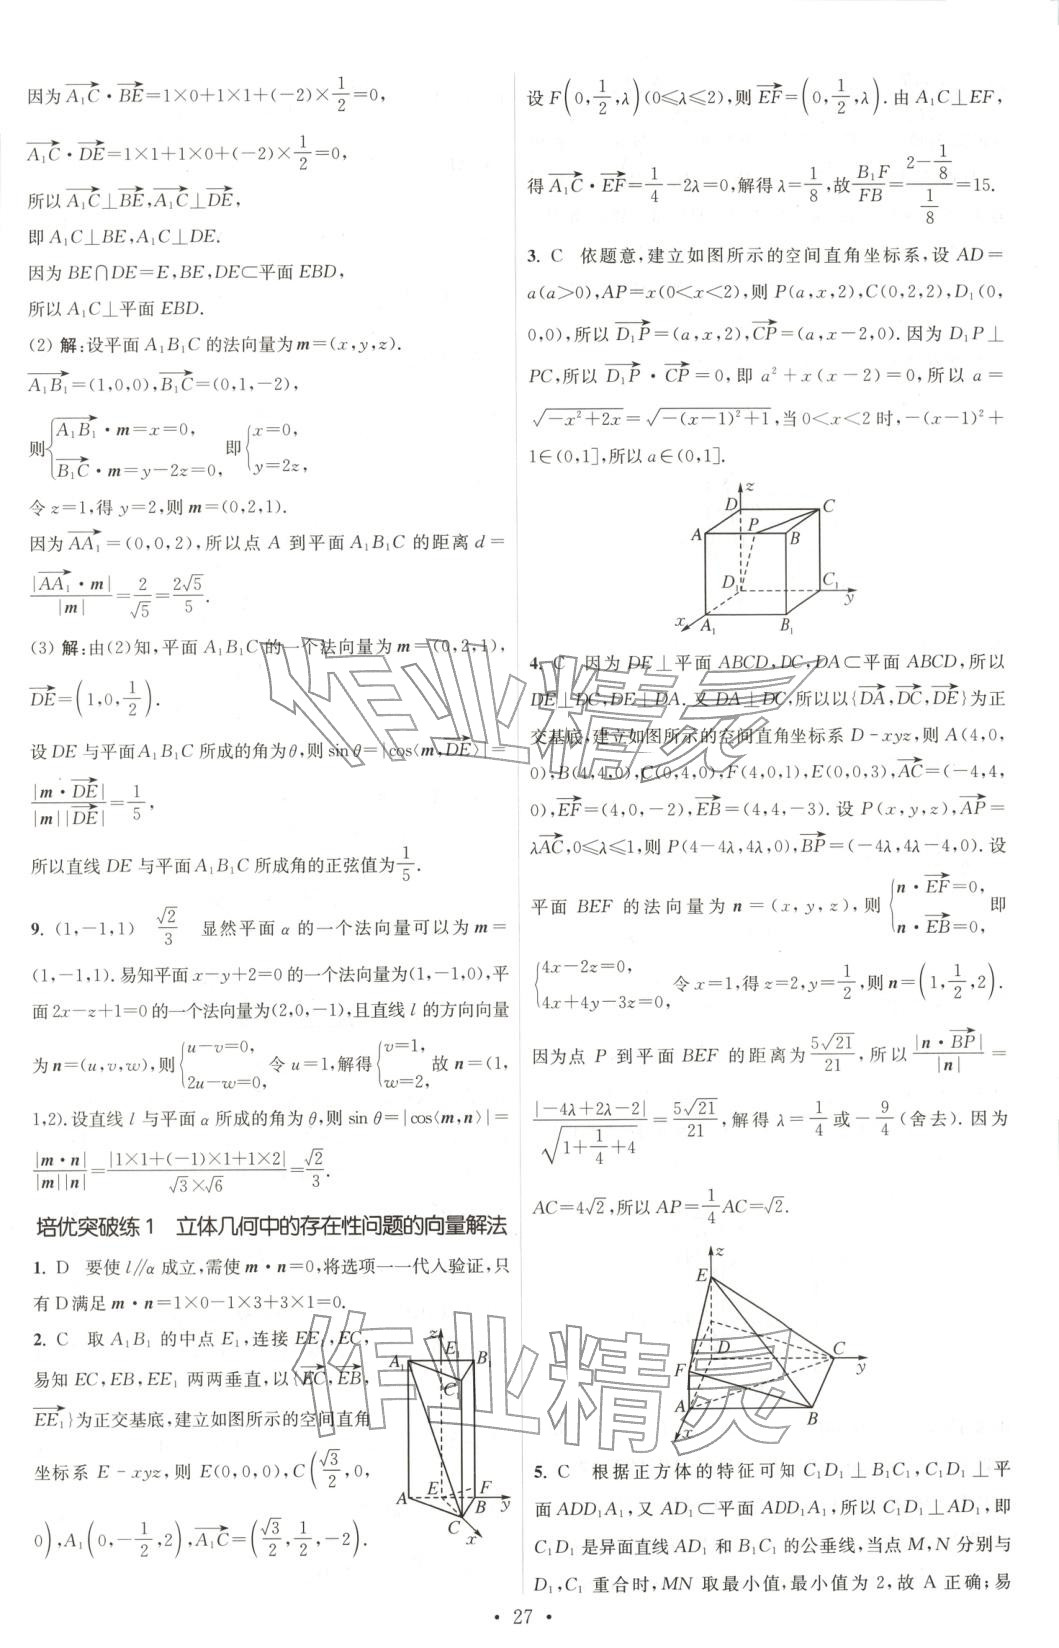 因为$\overrightarrow{A_1C}\cdot\overrightarrow{BE}=1×0+1×1+(-2)×\frac{1}{2}=0$,
$\overrightarrow{A_1C}\cdot\overrightarrow{DE}=1×1+1×0+(-2)×\frac{1}{2}=0$,
所以$\overrightarrow{A_1C}⊥\overrightarrow{BE}$,$\overrightarrow{A_1C}⊥\overrightarrow{DE}$,
即 A₁C⊥BE,A₁C⊥DE.
因为 BE∩DE=E,BE,DE⊂平面 EBD,
所以 A₁C⊥平面 EBD.
(2) 解:设平面 A₁B₁C 的法向量为 m=(x,y,z).
$\overrightarrow{A_1B_1}$=(1,0,0),$\overrightarrow{B_1C}$=(0,1,-2),
则$\begin{cases}\overrightarrow{A_1B_1}\cdot m=x=0,\\\overrightarrow{B_1C}\cdot m=y-2z=0,\end{cases}$即$\begin{cases}x=0,\\y=2z,\end{cases}$
令 z=1,得 y=2,则 m=(0,2,1).
因为$\overrightarrow{AA_1}$=(0,0,2),所以点 A 到平面 A₁B₁C 的距离 d=
$\frac{|\overrightarrow{AA_1}\cdot m|}{|m|}=\frac{2}{\sqrt5}=\frac{2\sqrt5}{5}$.
(3) 解:由(2)知,平面 A₁B₁C 的一个法向量为 m=(0,2,1),
$\overrightarrow{DE}=\left(1,0,\frac{1}{2}\right)$.
设 DE 与平面A₁B₁C 所成的角为θ,则 sinθ=|cos⟨m,$\overrightarrow{DE}$⟩|=
$\frac{|m\cdot\overrightarrow{DE}|}{|m||\overrightarrow{DE}|}=\frac{1}{5}$,
所以直线 DE 与平面A₁B₁C 所成角的正弦值为$\frac{1}{5}$.
9. (1,-1,1) $\frac{\sqrt2}{3}$ 显然平面 α 的一个法向量可以为 m=
(1,-1,1).易知平面 x-y+2=0 的一个法向量为(1,-1,0),平
面 2x-z+1=0 的一个法向量为(2,0,-1),且直线 l 的方向向量
为 n=(u,v,w),则$\begin{cases}u-v=0,\\2u-w=0,\end{cases}$令 u=1,解得$\begin{cases}v=1,\\w=2,\end{cases}$故 n=(1,
1,2).设直线 l 与平面 α 所成的角为 θ,则 sin θ=|cos⟨m,n⟩|=
$\frac{|m\cdot n|}{|m||n|}=\frac{|1×1+(-1)×1+1×2|}{\sqrt3×\sqrt6}=\frac{\sqrt2}{3}$.
培优突破练 1 立体几何中的存在性问题的向量解法
1. D 要使 l∥α 成立,需使 m·n=0,将选项一一代入验证,只
有 D 满足 m·n=1×0-1×3+3×1=0.
2. C 取 A₁B₁ 的中点 E₁,连接 EE₁,EC,
易知 EC,EB,EE₁ 两两垂直,以{$\overrightarrow{EC}$,$\overrightarrow{EB}$,
$\overrightarrow{EE_1}$}为正交基底,建立如图所示的空间直角
坐标系 E-xyz,则 E(0,0,0),C$\left(\frac{\sqrt3}{2},0,\right.$
$\left.0\right)$,A₁$\left(0,-\frac{1}{2},2\right)$,$\overrightarrow{A_1C}=\left(\frac{\sqrt3}{2},\frac{1}{2},-2\right)$.
z
E₁
A₁
B₁
C₁
A
E
F
B
y
C
x
设 F$\left(0,\frac{1}{2},λ\right)$(0≤λ≤2),则$\overrightarrow{EF}=\left(0,\frac{1}{2},λ\right)$.由 A₁C⊥EF,
得$\overrightarrow{A_1C}\cdot\overrightarrow{EF}=\frac{1}{4}-2λ=0$,解得 λ=$\frac{1}{8}$,故$\frac{B_1F}{FB}=\frac{2-\frac{1}{8}}{\frac{1}{8}}=15$.
3. C 依题意,建立如图所示的空间直角坐标系,设 AD=
a(a>0),AP=x(0<x<2),则 P(a,x,2),C(0,2,2),D₁(0,
0,0),所以 $\overrightarrow{D_1P}$=(a,x,2),$\overrightarrow{CP}$=(a,x-2,0).因为 D₁P⊥
PC,所以 $\overrightarrow{D_1P}\cdot\overrightarrow{CP}$=0,即 a²+x(x-2)=0,所以 a=
$\sqrt{-x^2+2x}=\sqrt{-(x-1)^2+1}$,当 0<x<2 时,-(x-1)²+
1∈(0,1],所以 a∈(0,1].
z
D
C
A
P
B
D₁
C₁
y
x
A₁
B₁
4. C 因为 DE⊥平面 ABCD,DC,DA⊂平面 ABCD,所以
DE⊥DC,DE⊥DA.又 DA⊥DC,所以以{$\overrightarrow{DA}$,$\overrightarrow{DC}$,$\overrightarrow{DE}$}为正
交基底,建立如图所示的空间直角坐标系 D-xyz,则 A(4,0,
0),B(4,4,0),C(0,4,0),F(4,0,1),E(0,0,3),$\overrightarrow{AC}$=(-4,4,
0),$\overrightarrow{EF}$=(4,0,-2),$\overrightarrow{EB}$=(4,4,-3).设 P(x,y,z),$\overrightarrow{AP}$=
λ$\overrightarrow{AC}$,0≤λ≤1,则 P(4-4λ,4λ,0),$\overrightarrow{BP}$=(-4λ,4λ-4,0).设
平面 BEF 的法向量为 n=(x,y,z),则$\begin{cases}n\cdot\overrightarrow{EF}=0,\\n\cdot\overrightarrow{EB}=0,\end{cases}$即
$\begin{cases}4x-2z=0,\\4x+4y-3z=0,\end{cases}$令 x=1,得 z=2,y=$\frac{1}{2}$,则 n=$\left(1,\frac{1}{2},2\right)$.
因为点 P 到平面 BEF 的距离为$\frac{5\sqrt{21}}{21}$,所以$\frac{|n\cdot\overrightarrow{BP}|}{|n|}$=
$\frac{|-4λ+2λ-2|}{\sqrt{1+\frac{1}{4}+4}}=\frac{5\sqrt{21}}{21}$,解得 λ=$\frac{1}{4}$或-$\frac{9}{4}$(舍去).因为
AC=4$\sqrt2$,所以 AP=$\frac{1}{4}$AC=$\sqrt2$.
z
E
D
C
y
F
A
B
x
5. C 根据正方体的特征可知 C₁D₁⊥B₁C₁,C₁D₁⊥平
面 ADD₁A₁,又 AD₁⊂平面 ADD₁A₁,所以 C₁D₁⊥AD₁,即
C₁D₁ 是异面直线 AD₁ 和 B₁C₁ 的公垂线,当点 M,N 分别与
D₁,C₁ 重合时,MN 取最小值,最小值为 2,故 A 正确;易
• 27 •
作业精灵
作业精灵